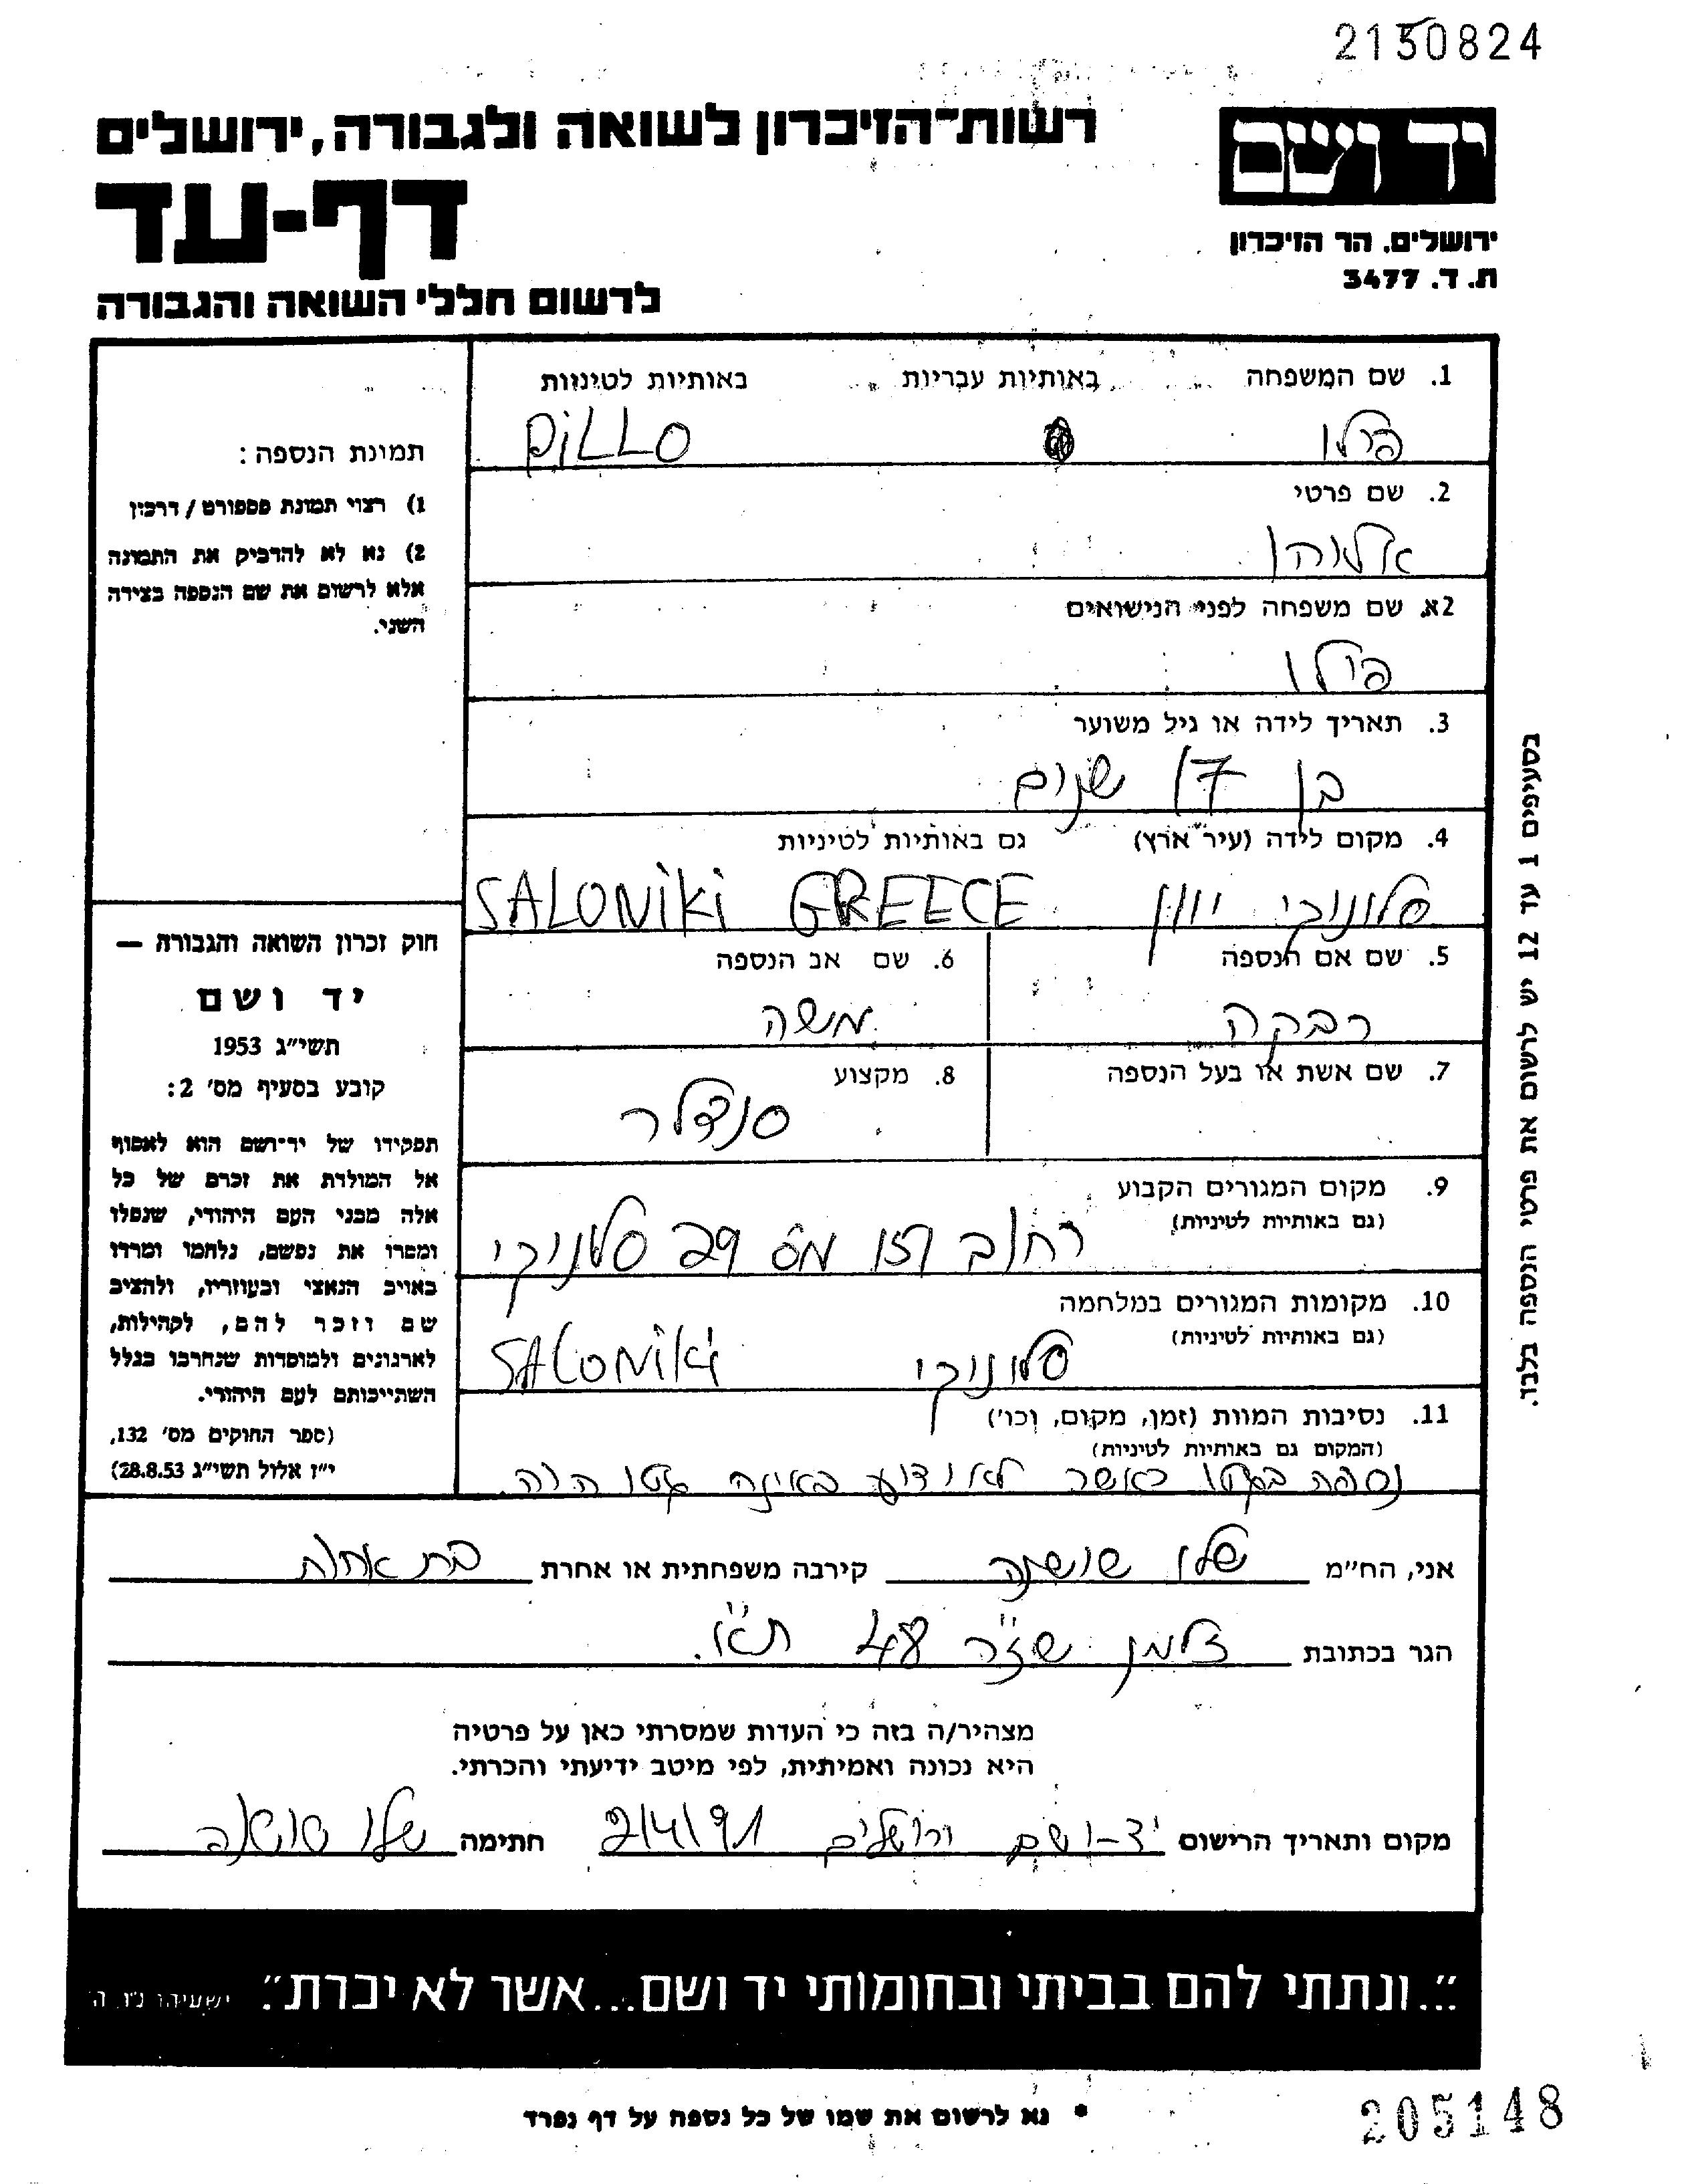 2130824
רשות־הזיכרון לשואה ולגבורה, ירושלים
יד ושם
דף-עד
ירושלים. הר הזיכרון
ת. ד. 3477
לרשום חללי השואה והגבורה
1. שם המשפחה באותיות עבריות באותיות לטיניות
פילו PiLLO
2. שם פרטי
2א. שם משפחה לפני הנישואים
פילו
3. תאריך לידה או גיל משוער
בן 17 שנים
4. מקום לידה (עיר ארץ) גם באותיות לטיניות
סלוניקי יוון SALONiKi GREECE
5. שם אם הנספה 6. שם אב הנספה
רבקה משה
7. שם אשת או בעל הנספה 8. מקצוע
סנדלר
9. מקום המגורים הקבוע
(גם באותיות לטיניות)
רחוב 151 מס 29 סלוניקי
10. מקומות המגורים במלחמה
(גם באותיות לטיניות)
סלוניקי SALONiKi
11. נסיבות המוות (זמן, מקום, וכו׳)
(המקום גם באותיות לטיניות)
נספה בגטו כאשר לא ידוע באיזה גטו היה.
תמונת הנספה:
1) רצוי תמונת פספורט / דרכון
2) נא לא להדביק את התמונה
אלא לרשום את שם הנספה בצידה
השני.
חוק זכרון השואה והגבורה —
יד ושם
תשי״ג 1953
קובע בסעיף מס׳ 2:
תפקידו של יד־ושם הוא לאסוף
אל המולדת את זכרם של כל
אלה מבני העם היהודי, שנפלו
ומסרו את נפשם, נלחמו ומרדו
באויב הנאצי ובעוזריו, ולהציב
שם וזכר להם, לקהילות,
לארגונים ולמוסדות שנחרבו בגלל
השתייכותם לעם היהודי.
(ספר החוקים מס׳ 132,
י״ז אלול תשי״ג 28.8.53)
בסעיפים 1 עד 12 יש לרשום את פרטי הנספה בלבד.
אני, הח״מ שלו שושנה קירבה משפחתית או אחרת בת אחות
הגר בכתובת זלמן שז״ר 48 ת״א.
מצהיר/ה בזה כי העדות שמסרתי כאן על פרטיה
היא נכונה ואמיתית, לפי מיטב ידיעתי והכרתי.
מקום ותאריך הרישום יד-ושם ירושלים 2/4/91 חתימה שלו שושנה
״...ונתתי להם בביתי ובחומותי יד ושם...אשר לא יכרת״. ישעיהו נ״ו, ה׳
* נא לרשום את שמו של כל נספה על דף נפרד
205148